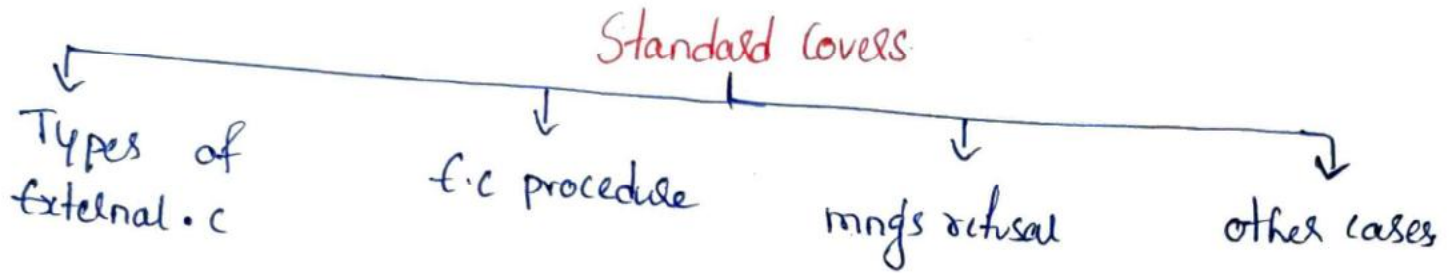 Standard Covers
Types of
External . C
E.C procedure
mng's refusal
other cases